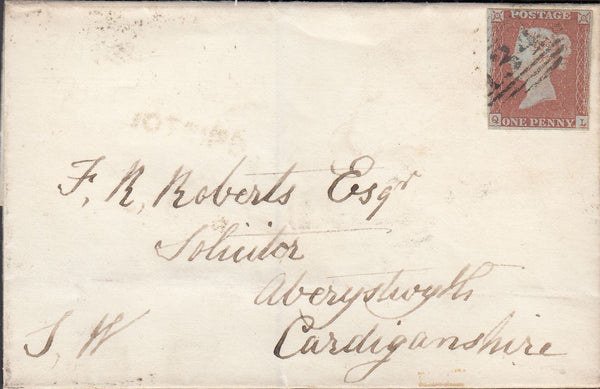 POSTAGE
Q ONE PENNY L
F. R. Roberts Esqr
Solicitor
Aberystwyth
S. W Cardiganshire